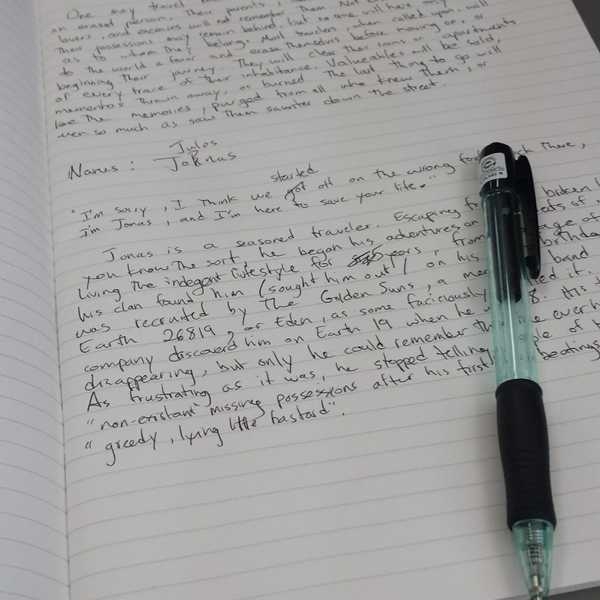 One may travel
an erased person. Their parents,
lovers, and enemies will not remember them. Not
Their possessions may remain behind, but no one will have any
as to whom they belong. Most travelers, when called upon, will
to the world a favor and erase themselves before moving on, or
beginning their journey. They will clear their rooms, apartments
of every trace of their inhabitance. Valueables will be sold,
mementos thrown away, or burned. The last thing to go will
be the memories, purged from all who knew them, or
even so much as saw them saunter down the street.
Jules
Names: Jonas
started
"I'm sorry, I think we got off on the wrong foot back there,
I'm Jonas, and I'm here to save your life."
Jonas is a seasoned traveler. Escaping
you know the sort, he began his adventures on
living the indegent lifestyle for years, from
his clan found him (sought him out) on his birthda
was recruited by The Golden Suns, a band
Earth 26819, or Eden, as some faciciously it.
company discoverd him on Earth 19 when he 8.
disappearing, but only he could remember
As frustrating as it was, he stopped telling of
"non-existant" missing possessions after his first beatings
"greedy, lying little bastard".